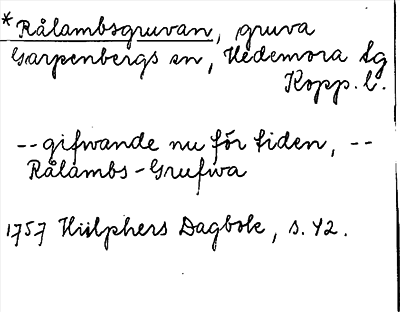 *Rålambsgruvan, gruva
Garpenbergs sn, Hedemora tg
Kopp. l.
-- gifwande nu för tiden, --
Rålambs-Grufwa
1757 Hülphers Dagbok, s. 42.